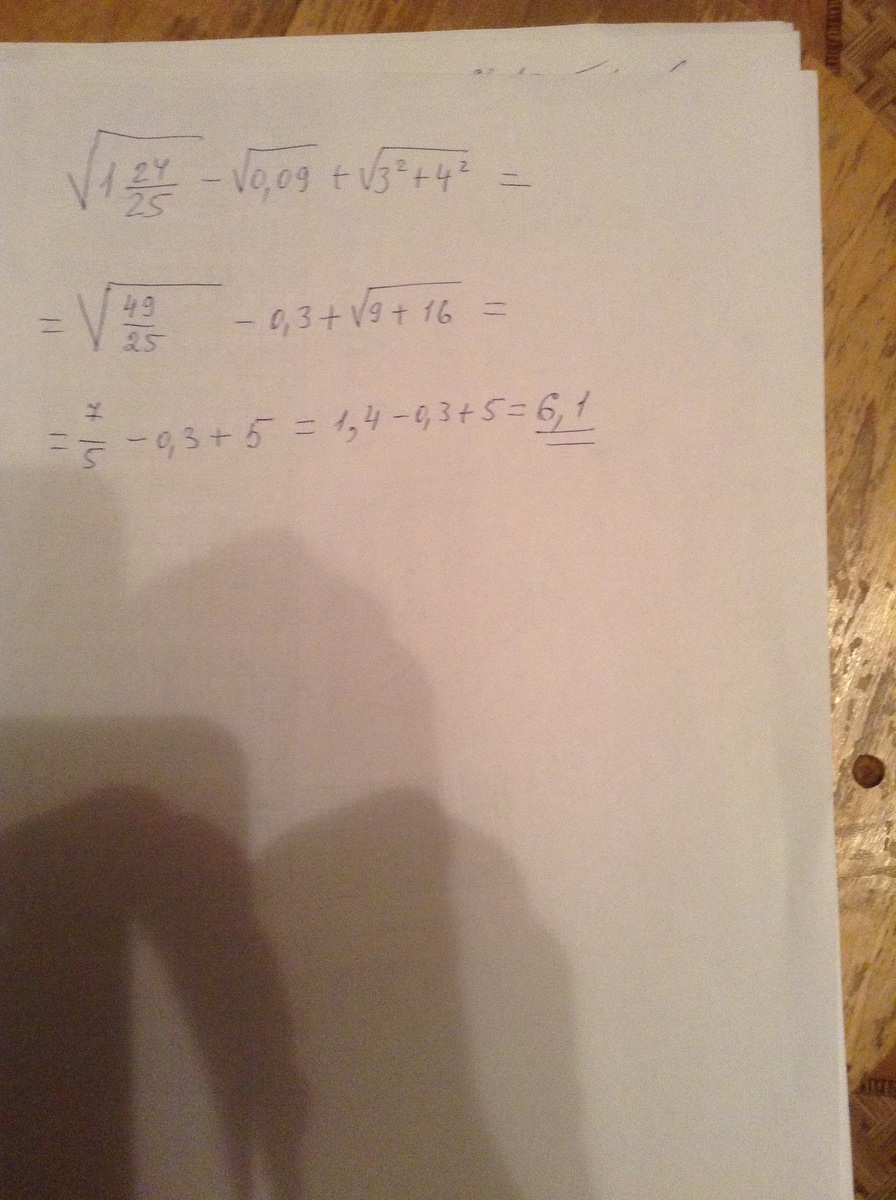 √(1 24/25) − √0,09 + √(3² + 4²) =
= √(49/25) − 0,3 + √(9 + 16) =
= 7/5 − 0,3 + 5 = 1,4 − 0,3 + 5 = 6,1